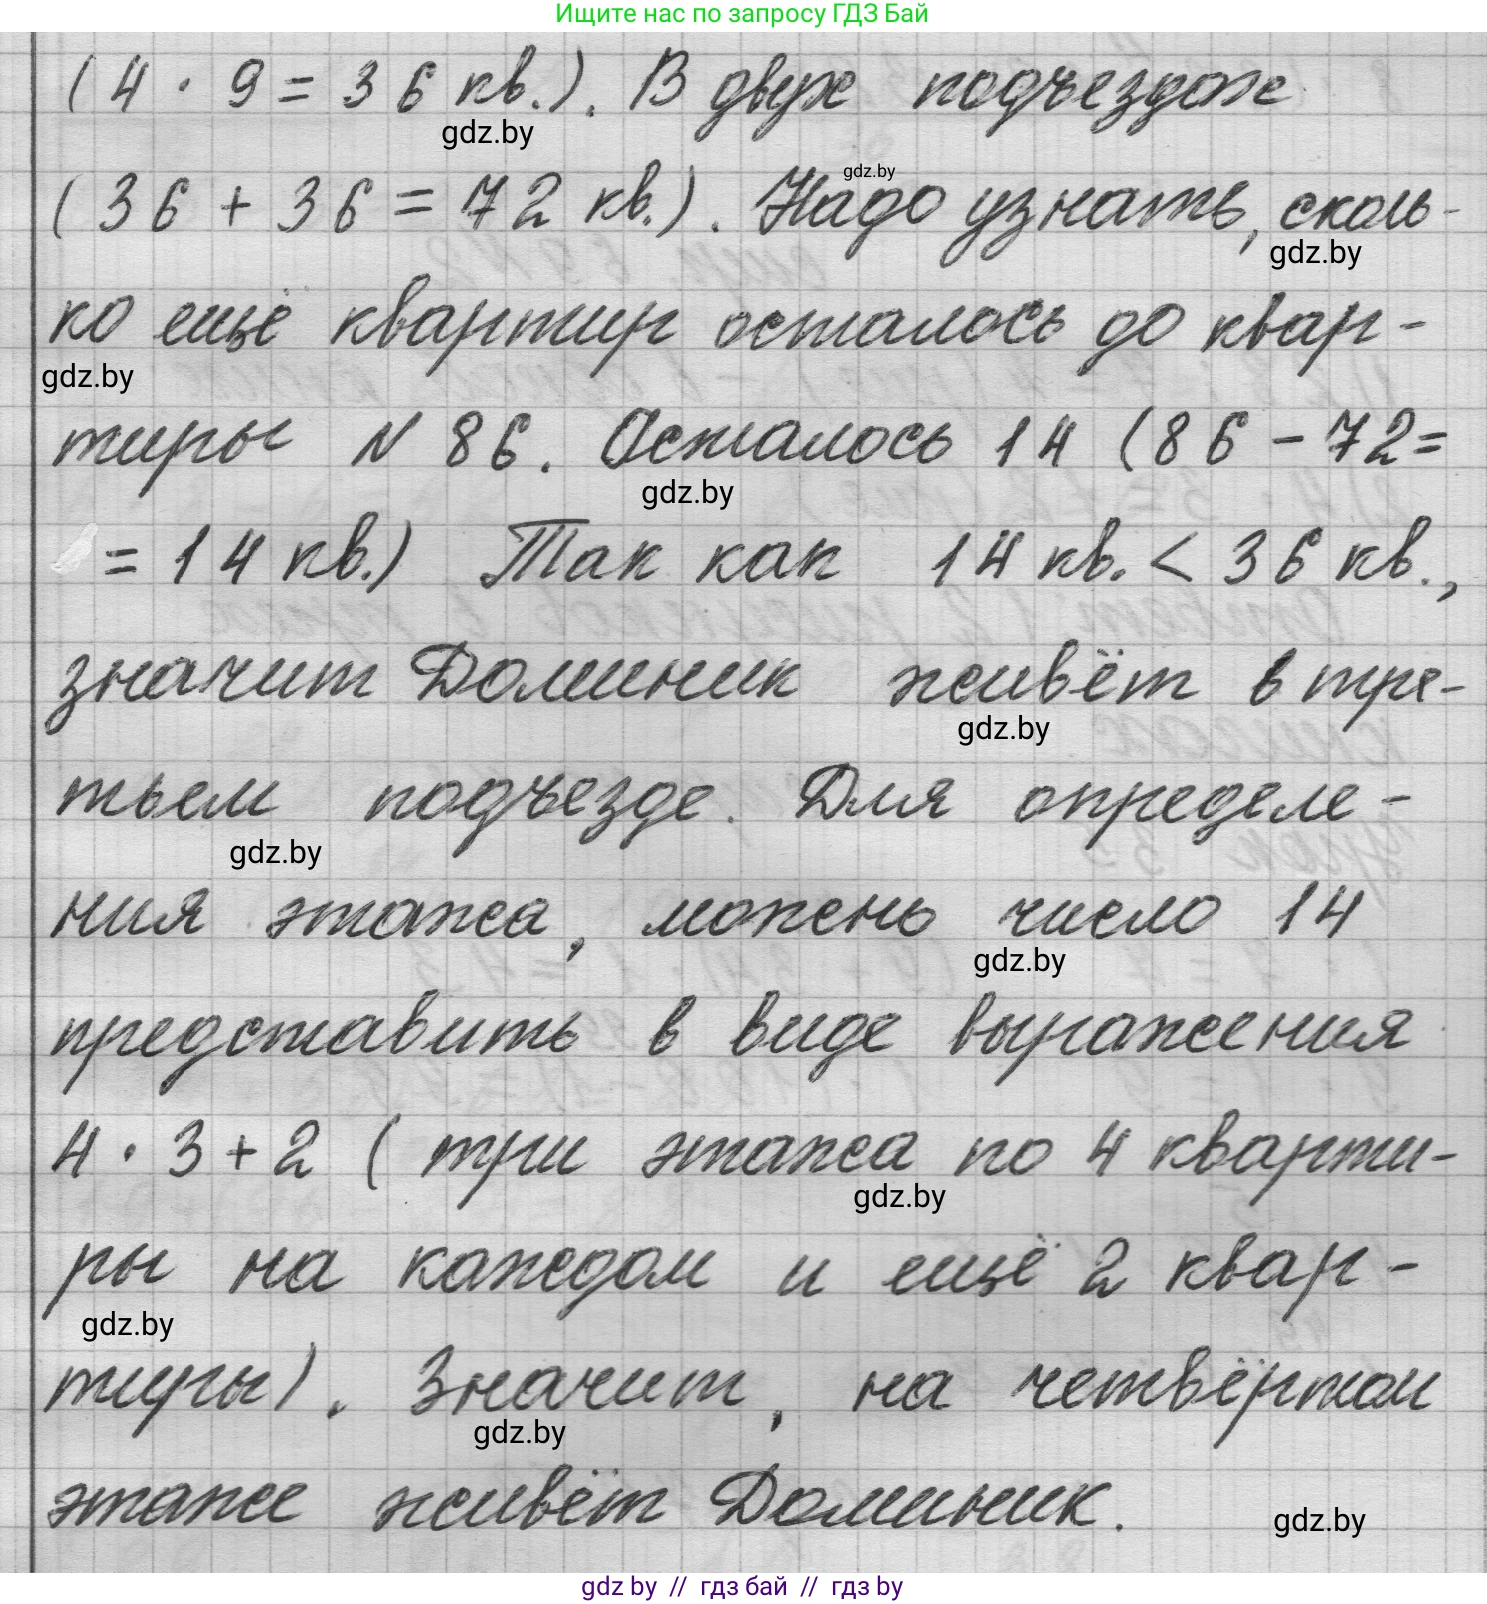 Ищите нас по запросу ГДЗ Бай
(4 · 9 = 36 кв.). В двух подъездах
gdz.by
gdz.by
(36 + 36 = 72 кв.). Надо узнать, сколь-
gdz.by
ко ещё квартир осталось до квар-
gdz.by
тиры N 86. Осталось 14 (86 - 72 =
gdz.by
= 14 кв.) Так как 14 кв. < 36 кв.,
значит Доминик живёт в тре-
gdz.by
тьем подъезде. Для определе-
gdz.by
ния этажа,можень число 14
gdz.by
представить в виде выражения
4 · 3 + 2 (три этажа по 4 кварти-
gdz.by
ры на каждом и ещё 2 квар-
gdz.by
тиры). Значит, на четвёртом
gdz.by
этаже живёт Доминик.
gdz.by
gdz by // гдз бай // гдз by